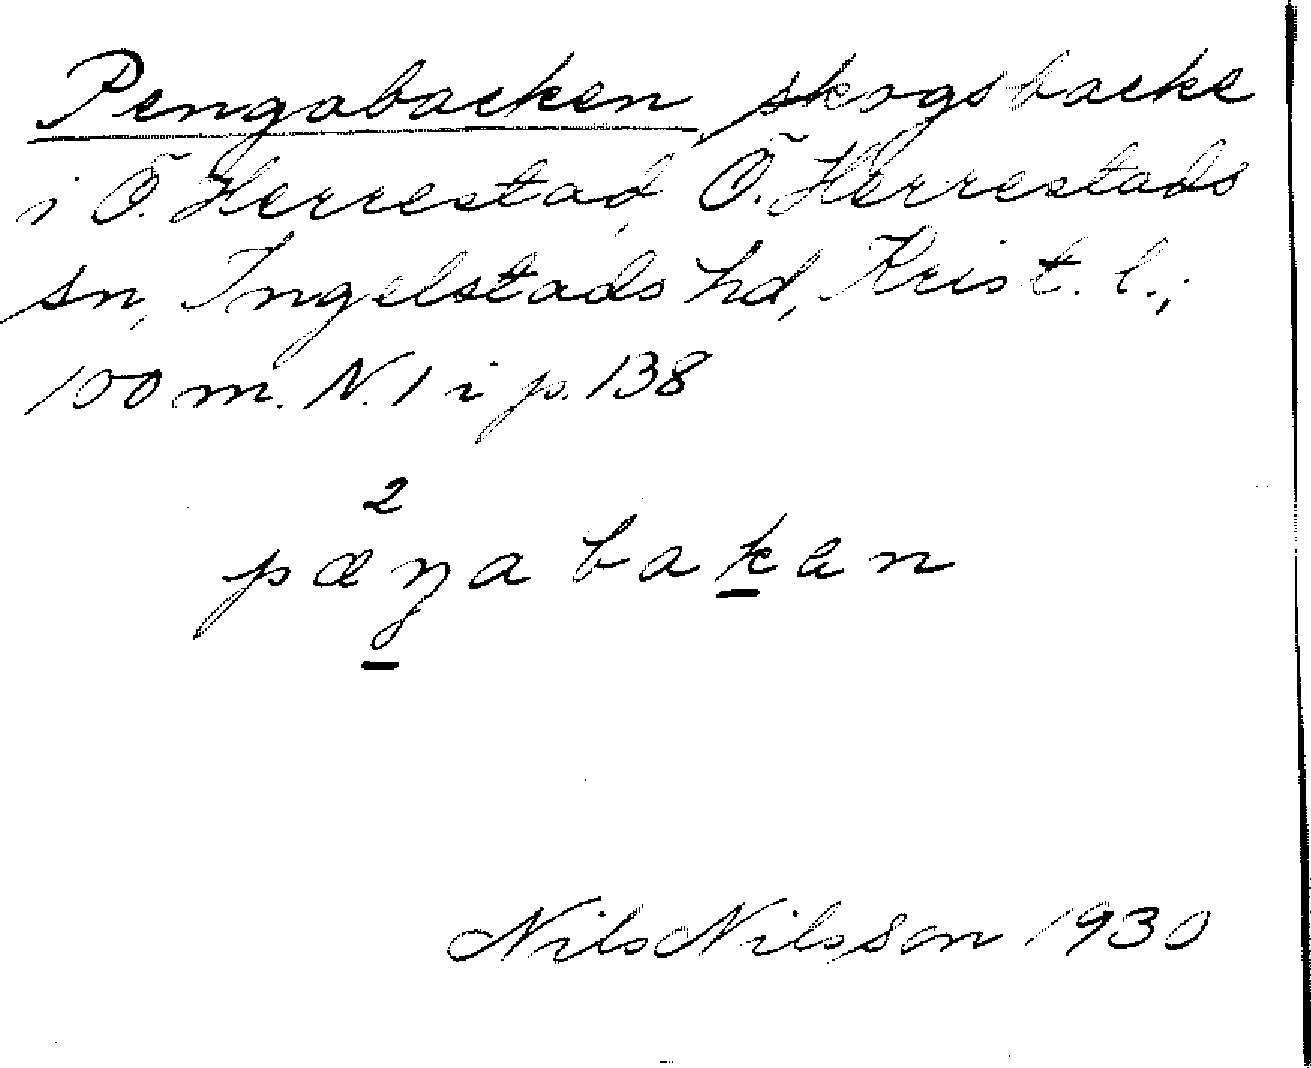 Pengabacken, skogsbacke
i Ö. Herrestad, Ö. Herrestads
sn, Ingelstads hd, Krist. l.;
100 m. N. 1 i p. 138
2
pæŋabakan
Nils Nilsson 1930